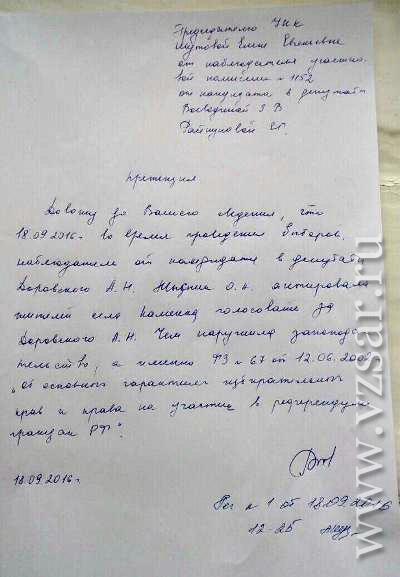 Председателю УИК
Шутовой Елене Евгеньевне
от наблюдателя участко-
вой комиссии № 1152
от кандидата в депутаты
З В
Е.Г.
претензия
Довожу до Вашего сведения, что
18.09.2016г во время проведения выборов,
наблюдатель от кандидата в депутаты
Доровского А.Н. О.Н. агитировала
жителей села Каменка голосовать за
Доровского А.Н. Чем нарушила законода-
тельство, а именно ФЗ № 67 от 12.06.2002
"об основных гарантиях избирательных
прав и права на участие в референдуме
граждан РФ".
18.09.2016г
Рег № 1 от 18.09.2016
12-25
www.vzsar.ru